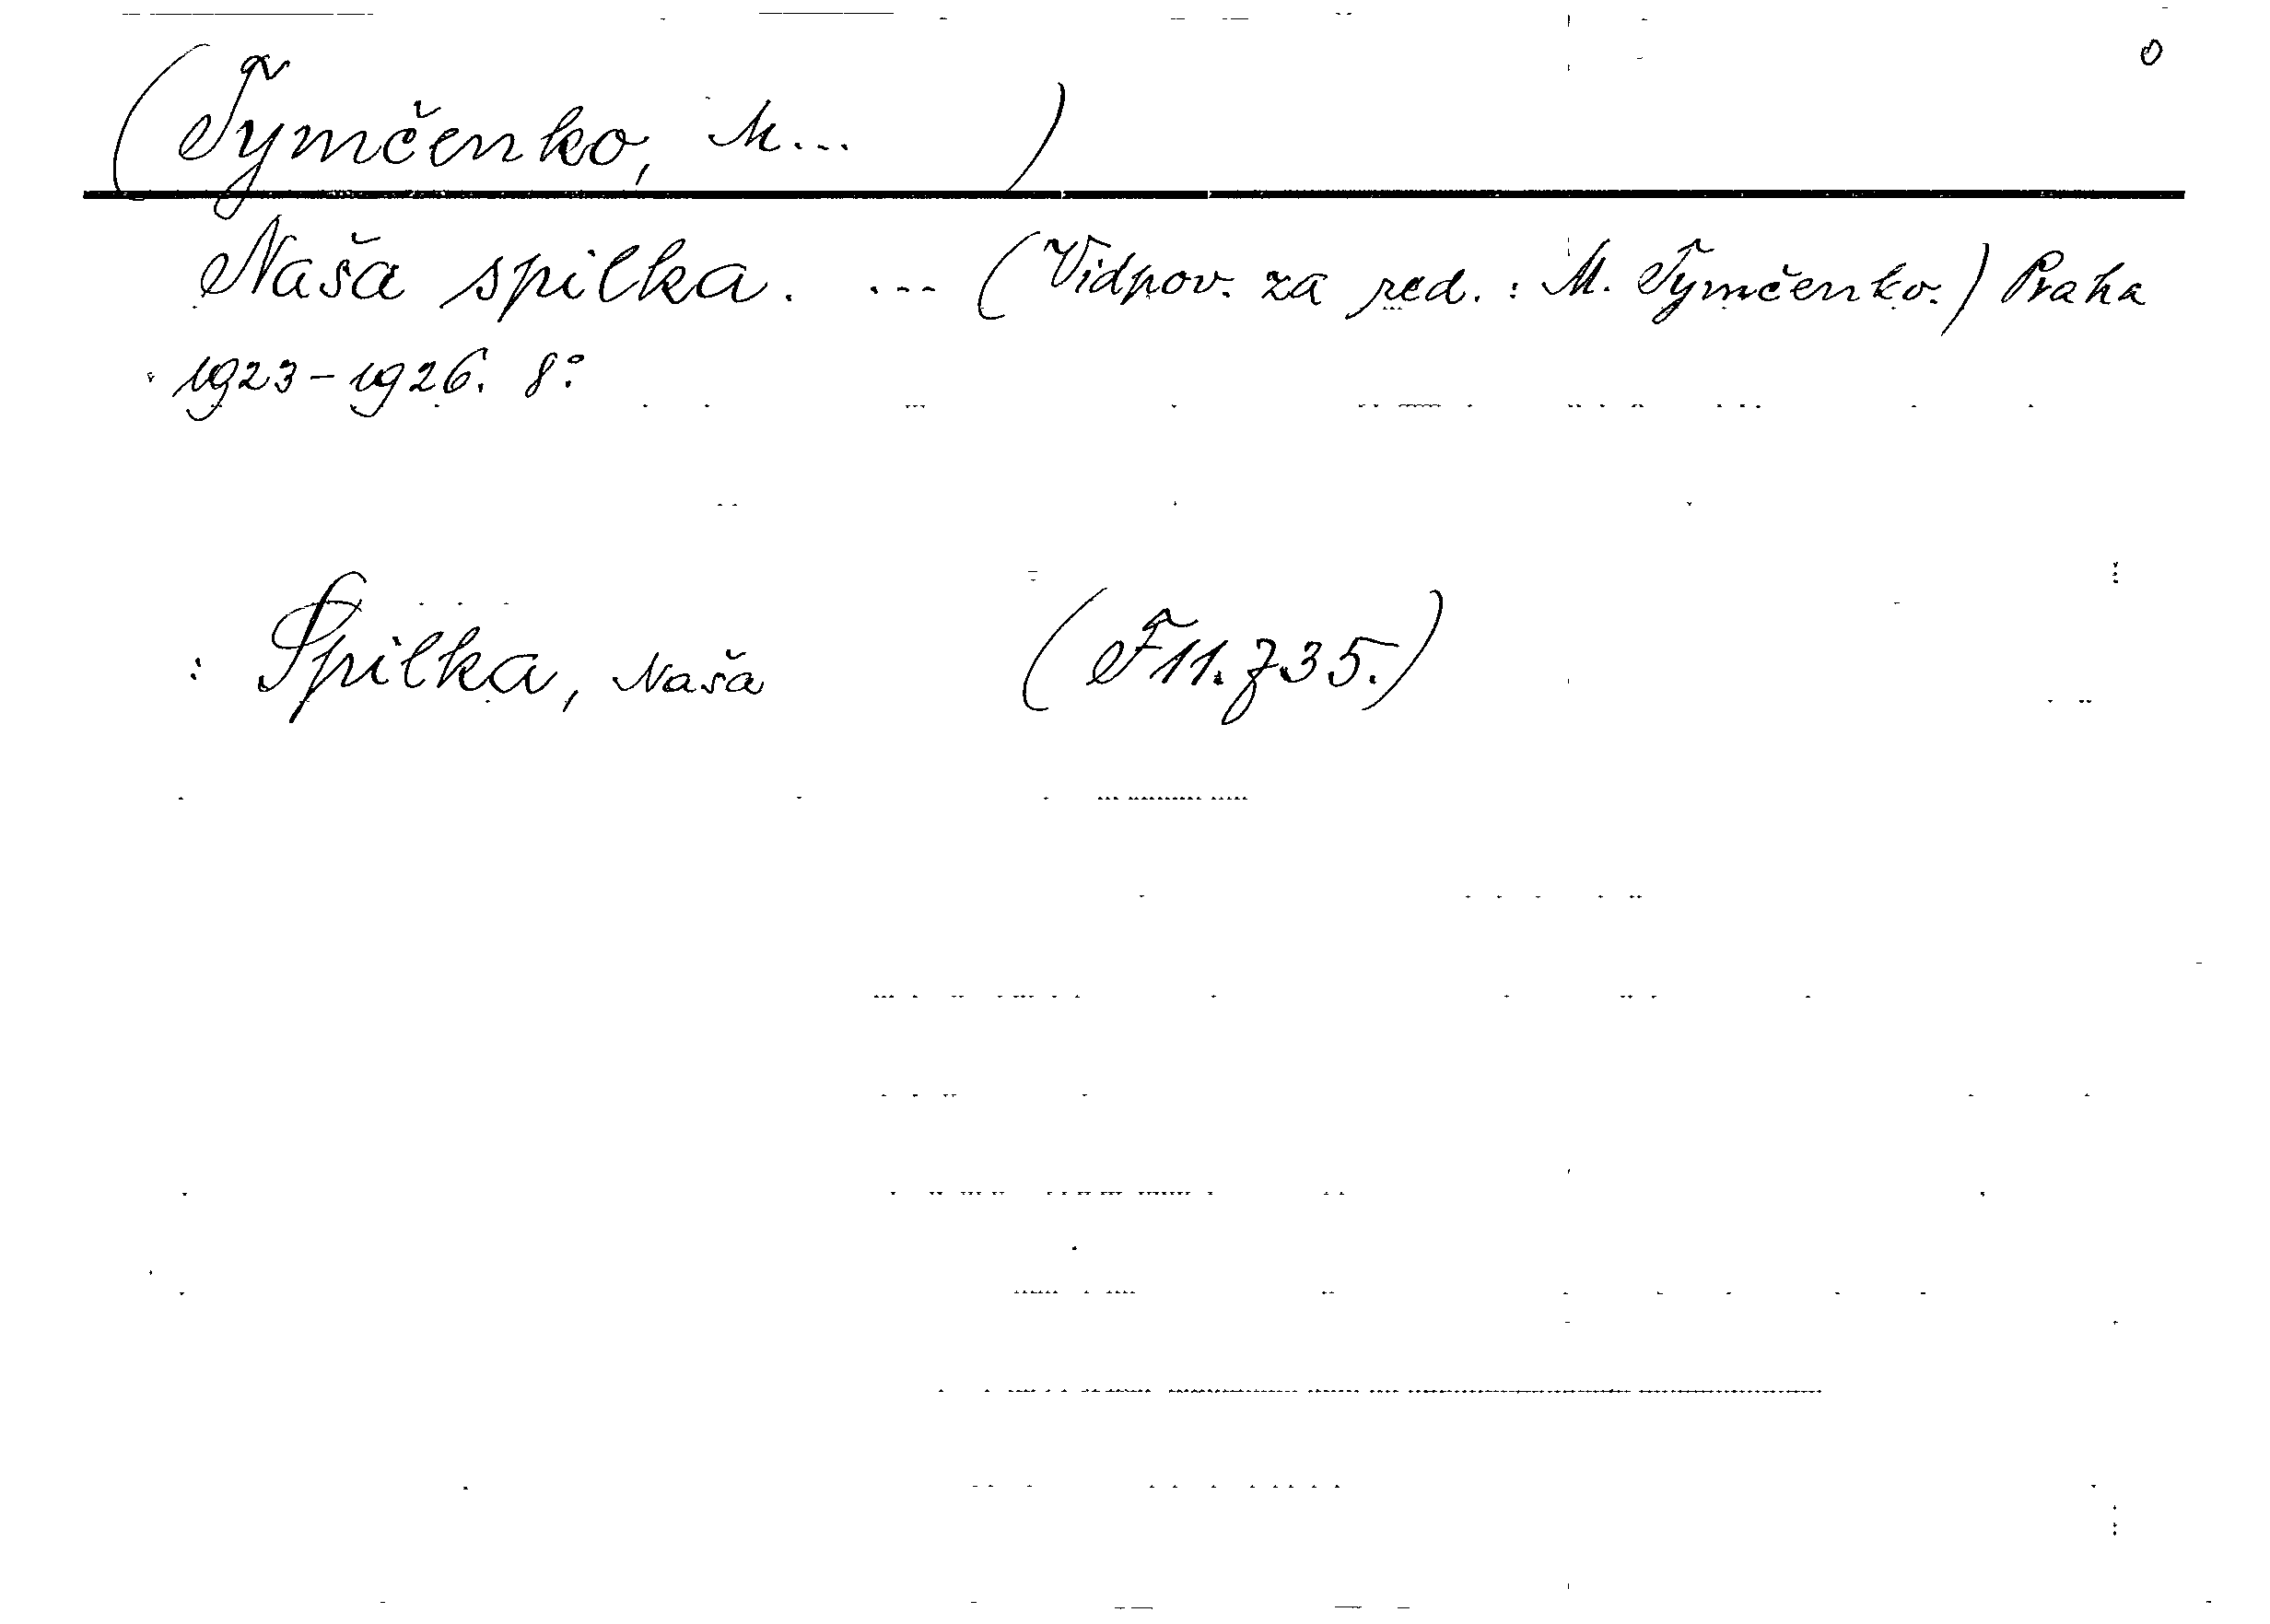 0
(Tymčenko, M... )
Naša spilka. ... (Vidpov. za red. : M. Tymčenko.) Praha
1923-1926. 8°.
: Spilka, Naša (F 11. z 35.)